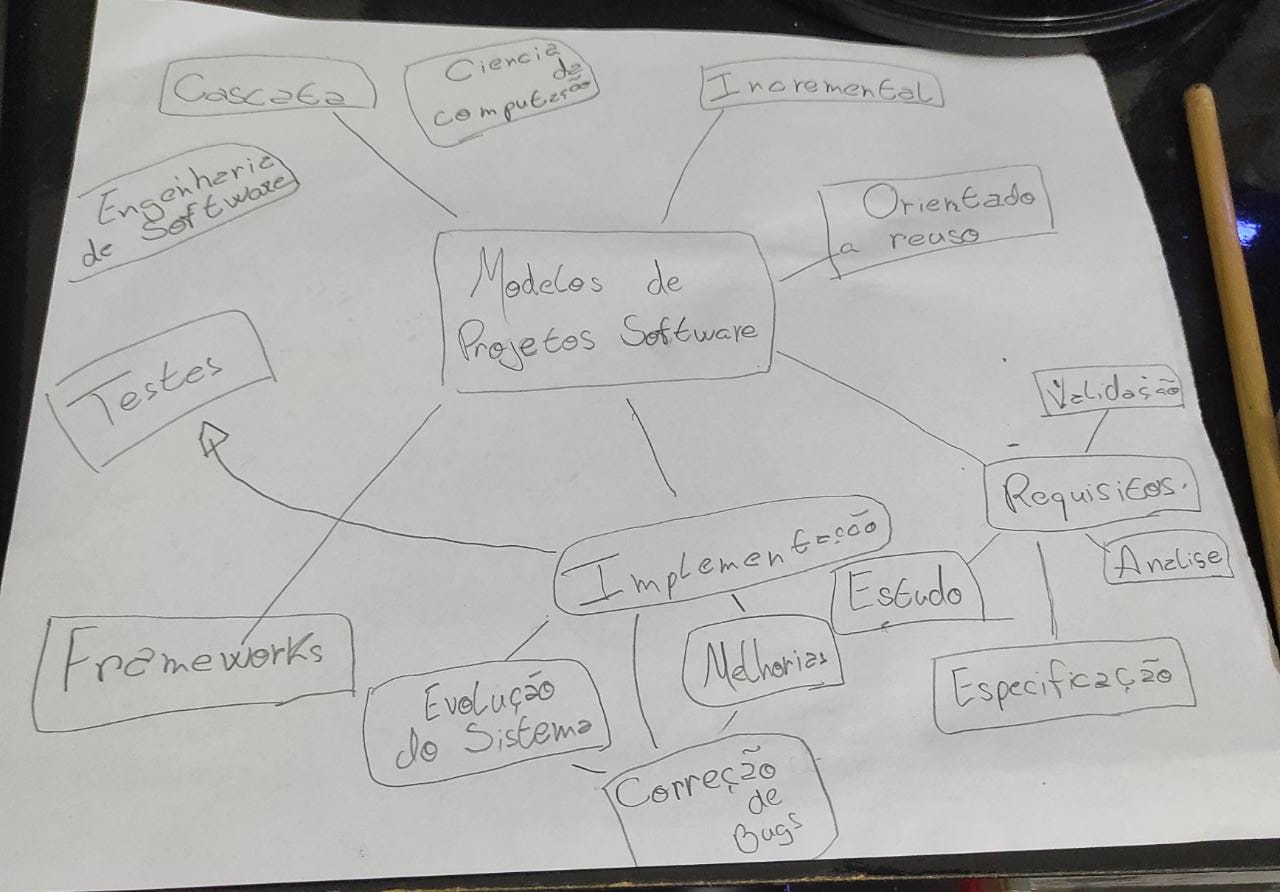 Cascata
Ciencia
da
computação
Incremental
Engenharia
de Software
Orientado
a reuso
Modelos de
Projetos Software
Testes
Validação
Requisitos
Implementação
Analise
Estudo
Frameworks
Melhorias
Especificação
Evolução
do Sistema
Correção
de
Bugs